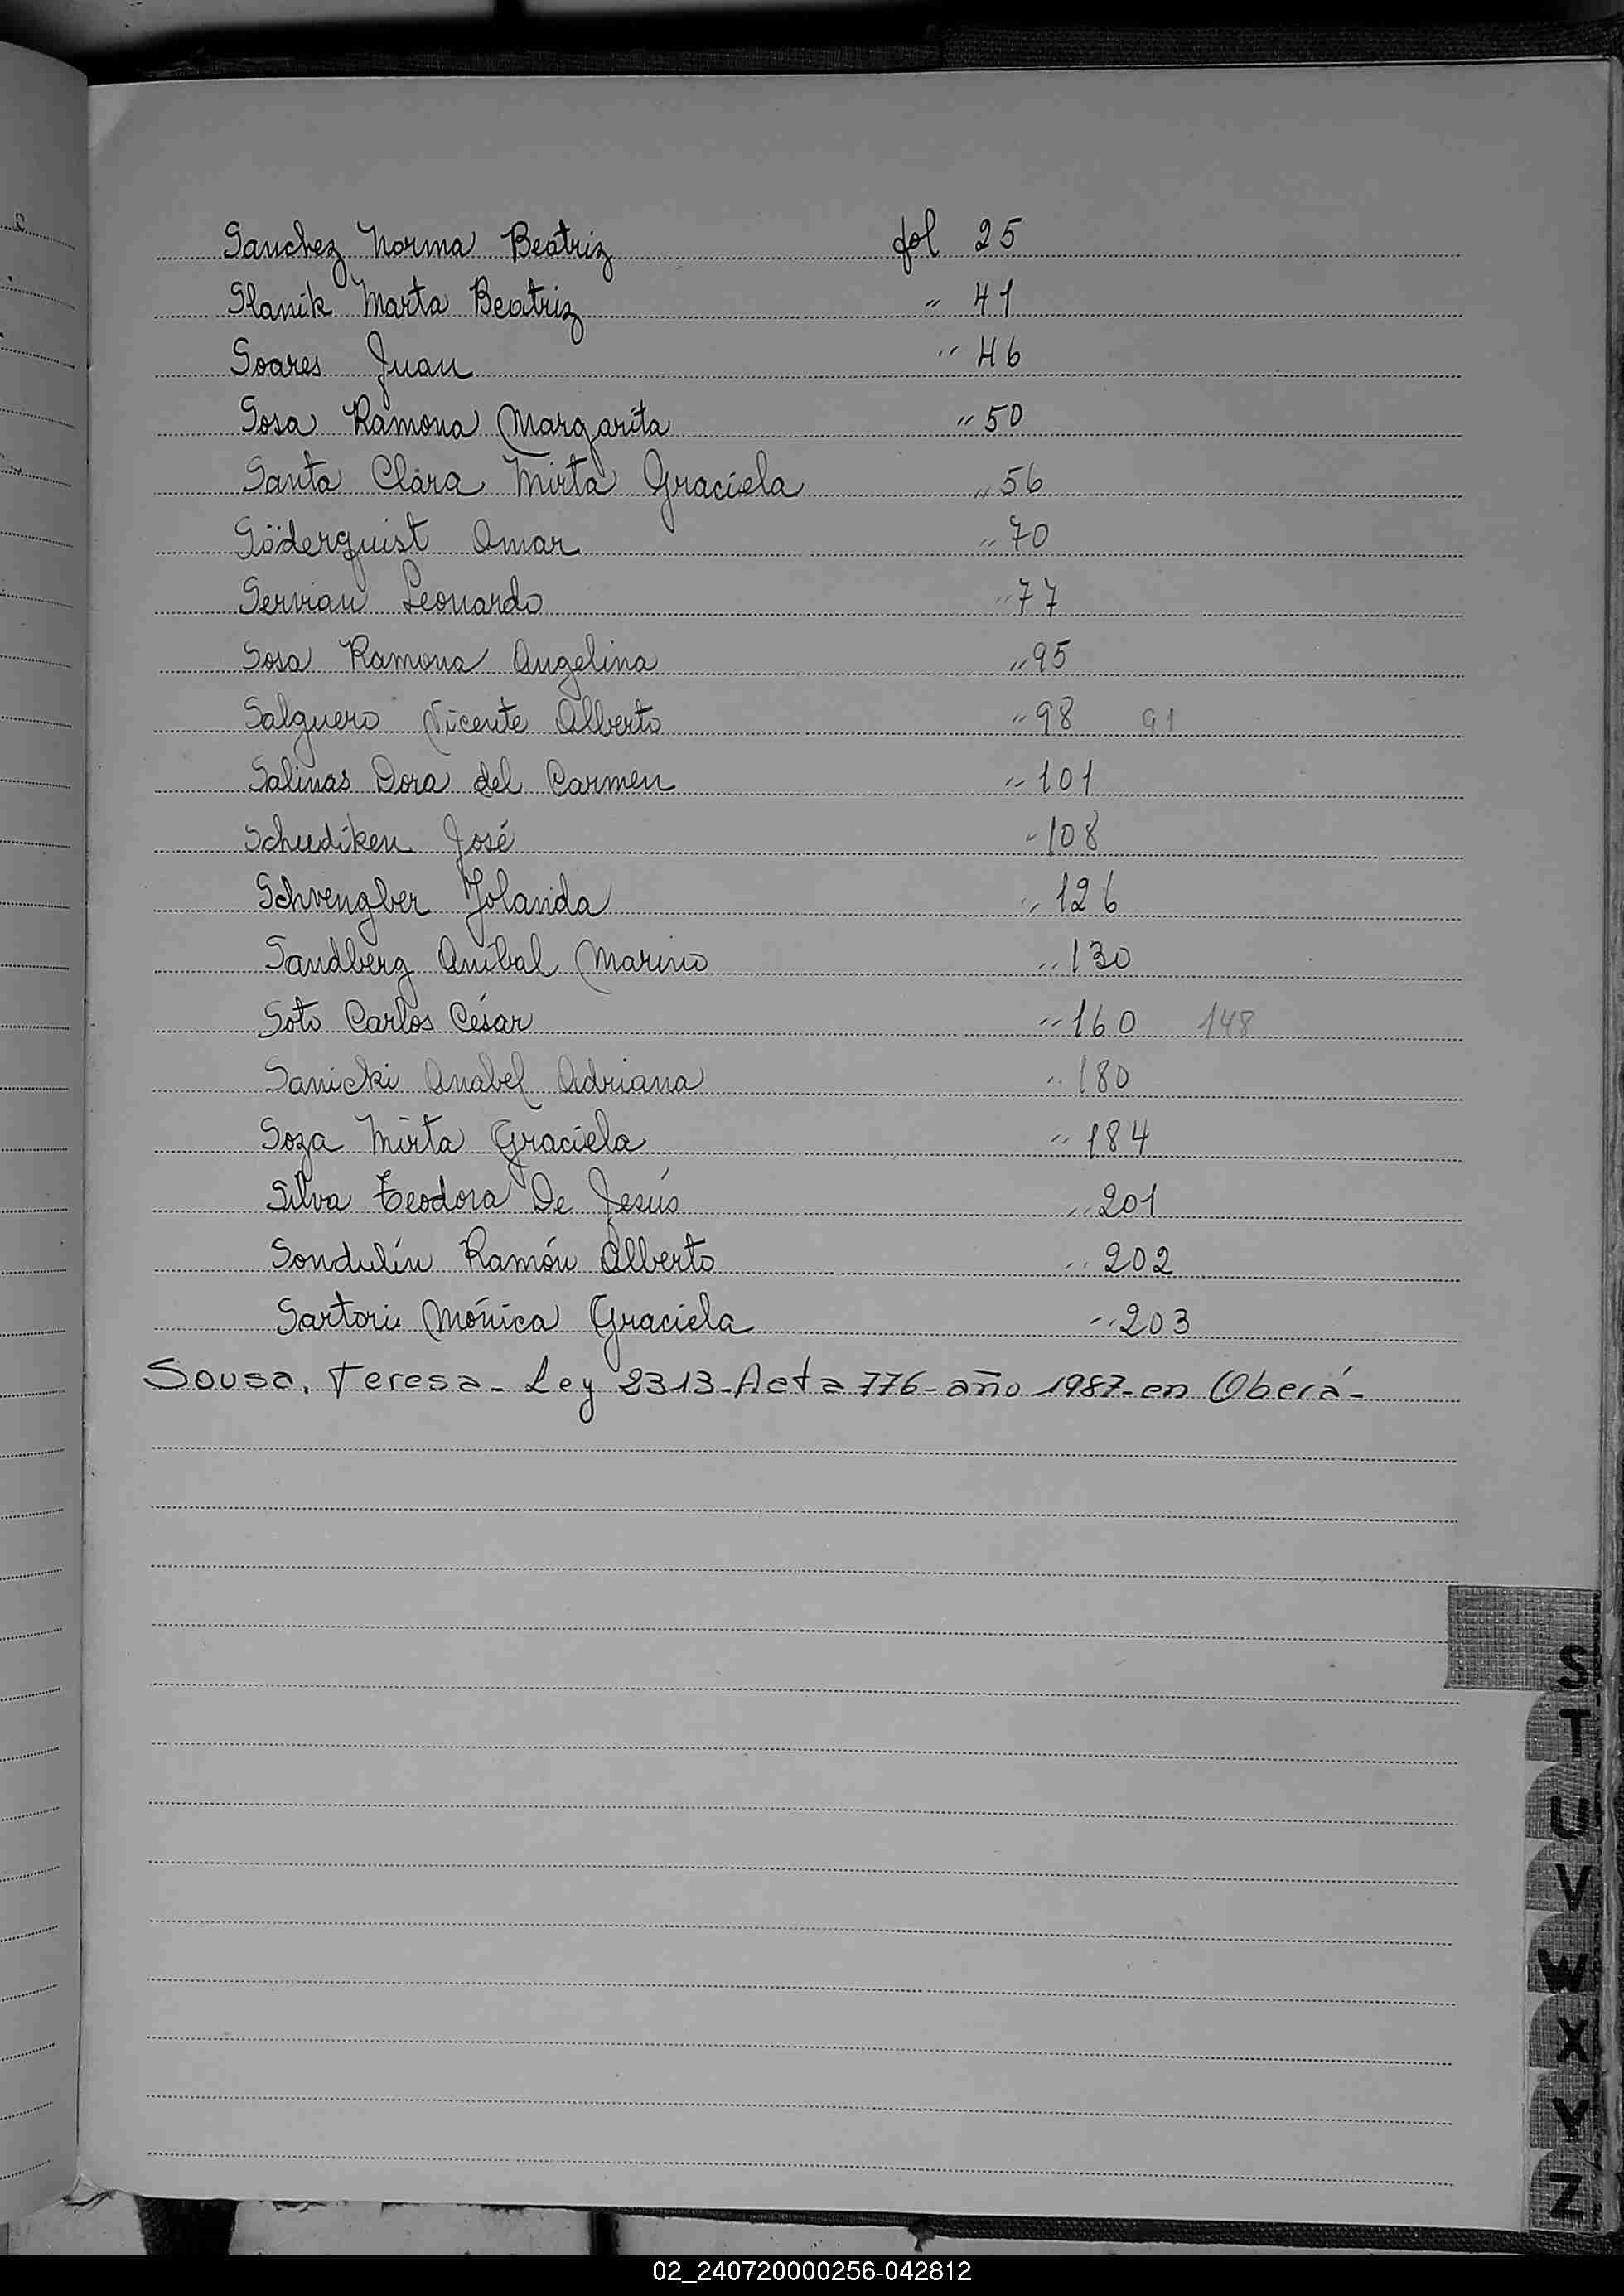 Sanchez Norma Beatriz fol 25
Slanik Marta Beatriz " 41
Soares Juan " 46
Sosa Ramona Margarita " 50
Santa Clara Mirta Graciela " 56
Söderquist Omar " 70
Servian Leonardo " 77
Sosa Ramona Angelina " 95
Salguero Vicente Alberto " 98 91
Salinas Dora del Carmen " 101
Schudiken José " 108
Schvengber Yolanda " 126
Sandberg Anibal Marino " 130
Soto Carlos César " 160 148
Sanicki Anabel Adriana " 180
Soza Mirta Graciela " 184
Silva Teodora De Jesús " 201
Sondulín Ramón Alberto " 202
Sartori Mónica Graciela " 203
Sousa, Teresa - Ley 2313 - Acta 776 - año 1987 - en Oberá -
S
T
U
V
W
X
Y
Z
02_240720000256-042812